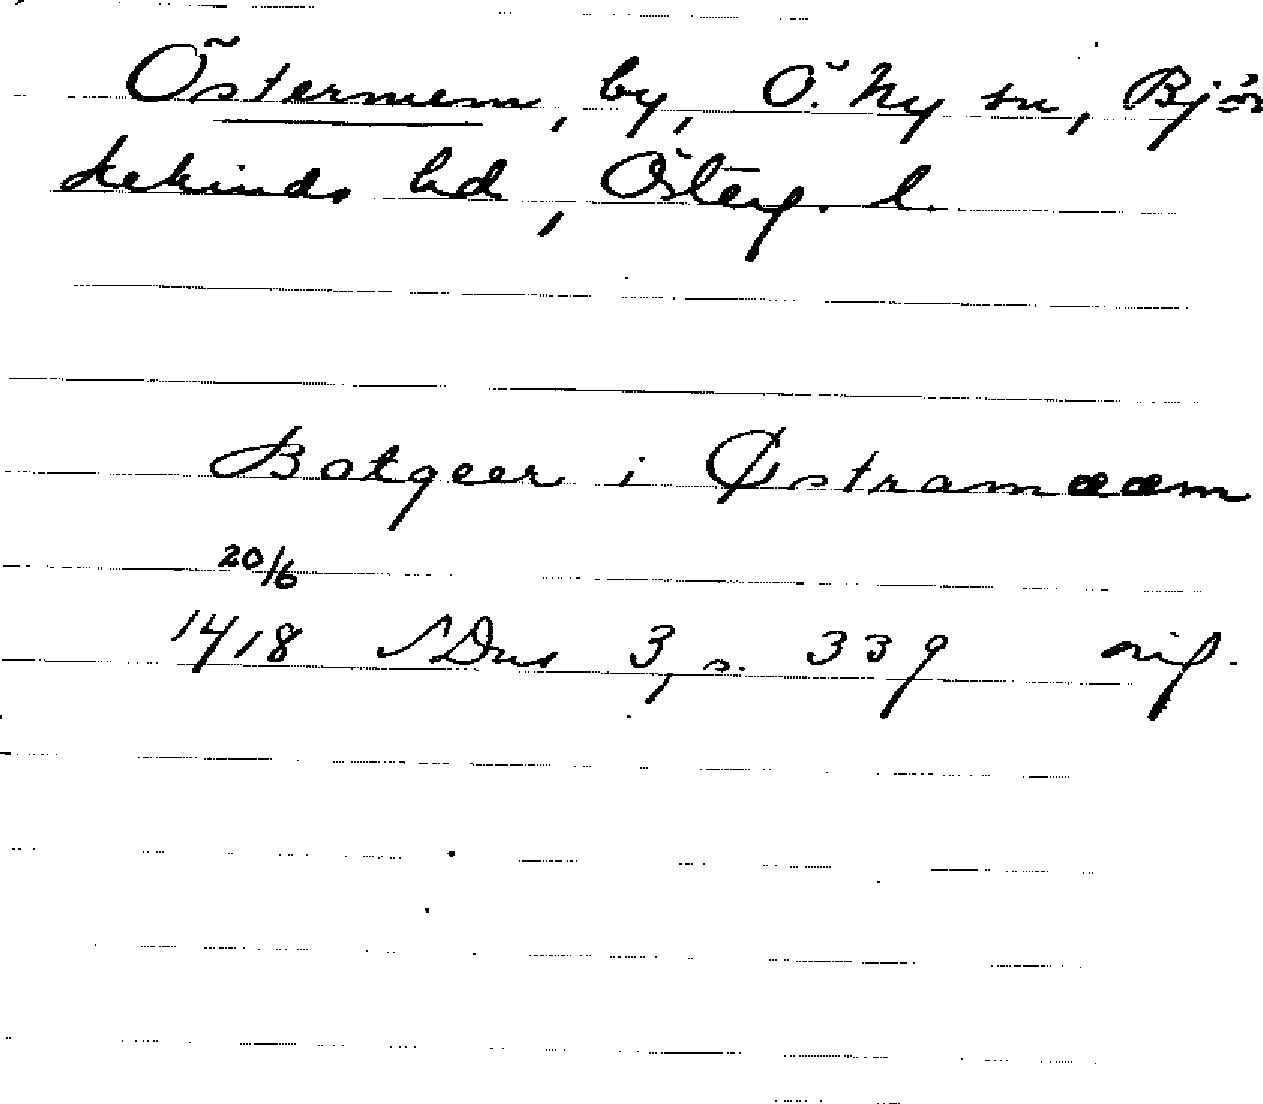 Östermem, by, Ö. Ny sn, Björ
kekinds hd, Österg. l.
Botgeer i Østramææm
20/6
1418 SDns 3, s. 339 orig.